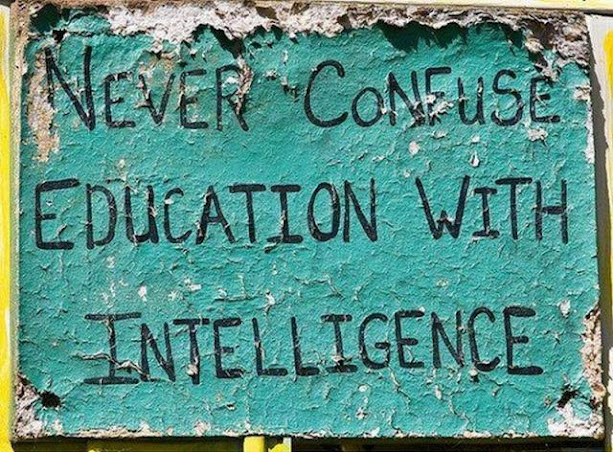 NEVER CONFUSE
EDUCATION WITH
INTELLIGENCE